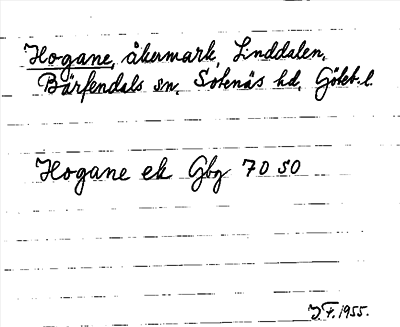 Hogane, åkermark, Linddalen,
Bärfendals sn. Sotenäs hd. Göteb. l.
Hogane ek Gbg 70 SO
J.F. 1955.